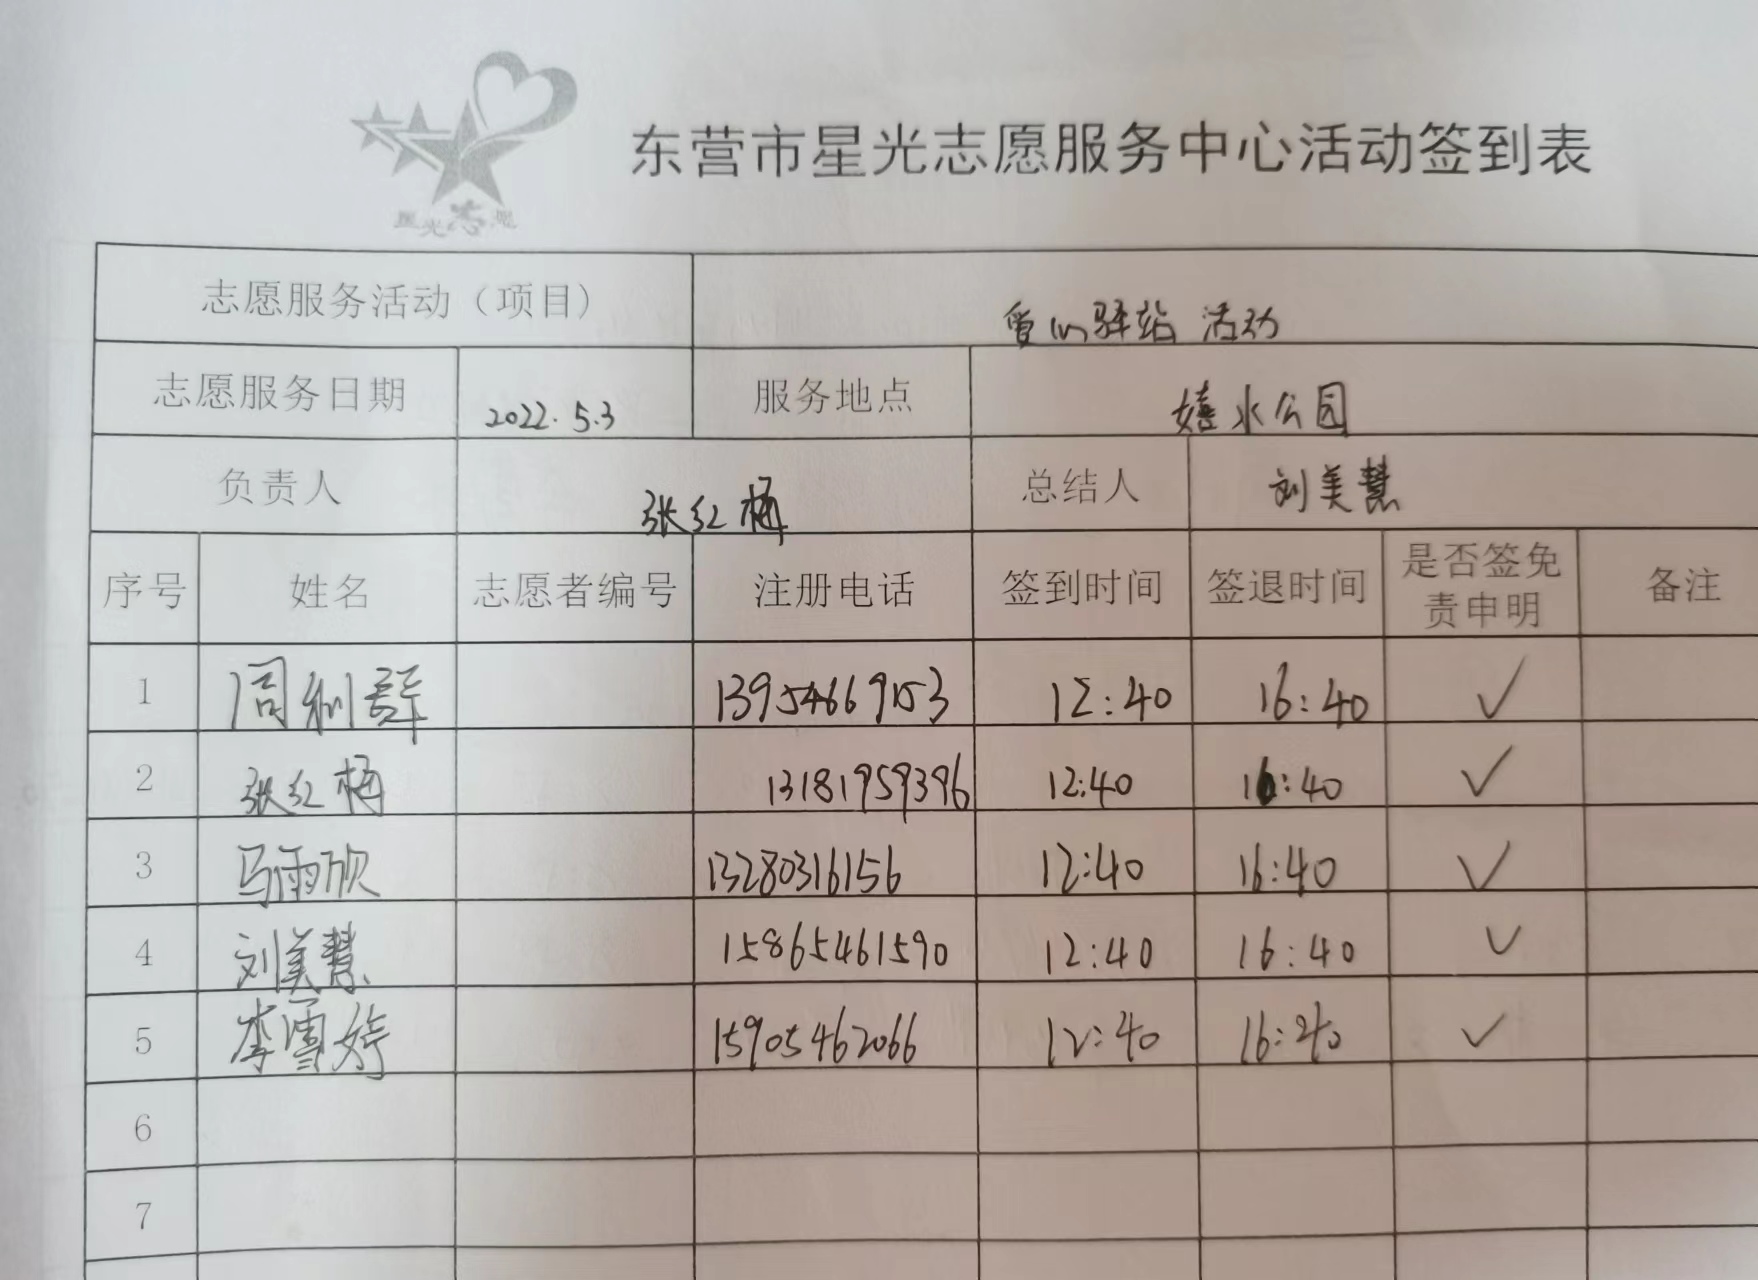 星光志愿
东营市星光志愿服务中心活动签到表
志愿服务活动（项目） 爱心驿站 活动
志愿服务日期 2022.5.3 服务地点 嬉水公园
负责人 张红梅 总结人 刘美慧
序号 姓名 志愿者编号 注册电话 签到时间 签退时间 是否签免责申明 备注
1 周利群 13954669153 12:40 16:40 ✓
2 张红梅 13181959396 12:40 16:40 ✓
3 马雨欣 13280316156 12:40 16:40 ✓
4 刘美慧 15865461590 12:40 16:40 ✓
5 李雪婷 15905462066 12:40 16:40 ✓
6
7